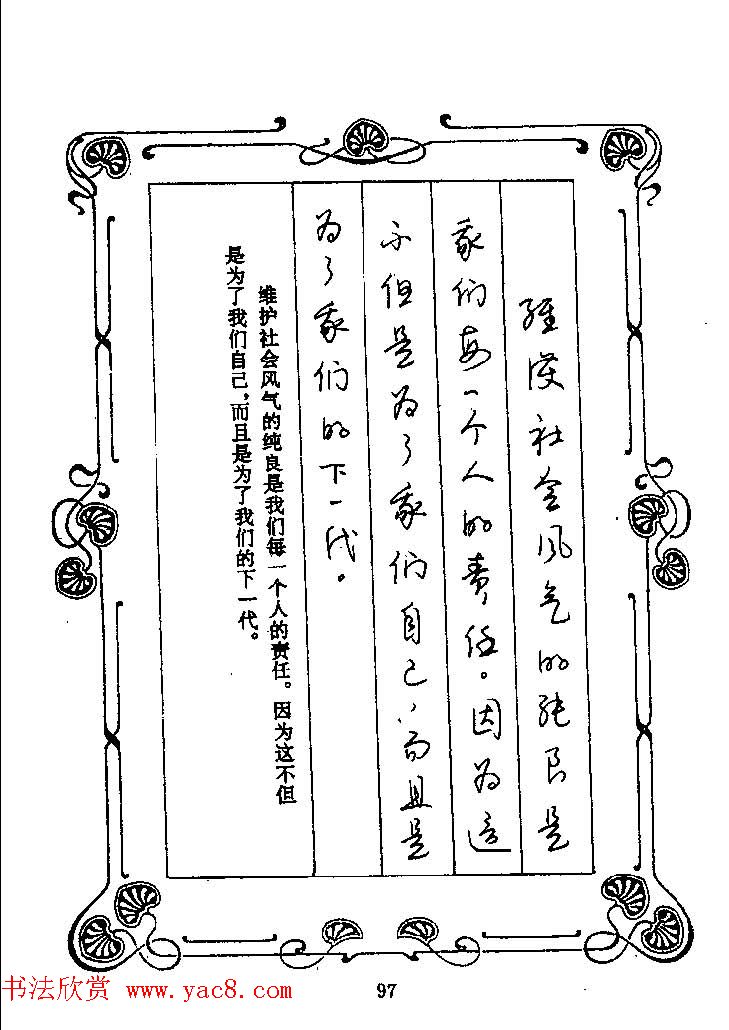 维护社会风气的纯良是
我们每一个人的责任。因为这
不但是为了我们自己,而且是
为了我们的下一代。
维护社会风气的纯良是我们每一个人的责任。因为这不但
是为了我们自己,而且是为了我们的下一代。
书法欣赏 www.yac8.com
97